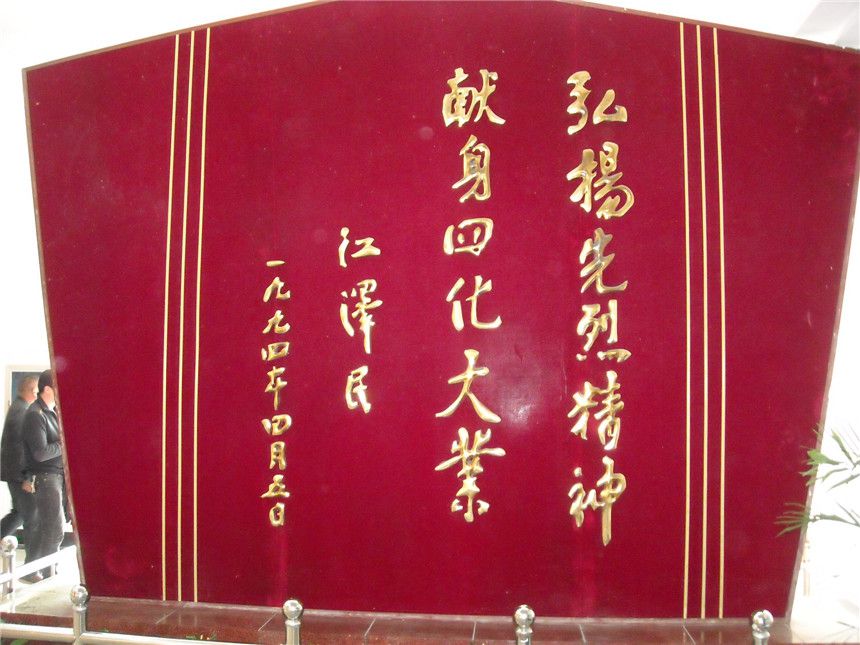 弘揚先烈精神
献身四化大業
江澤民
一九九四年四月五日